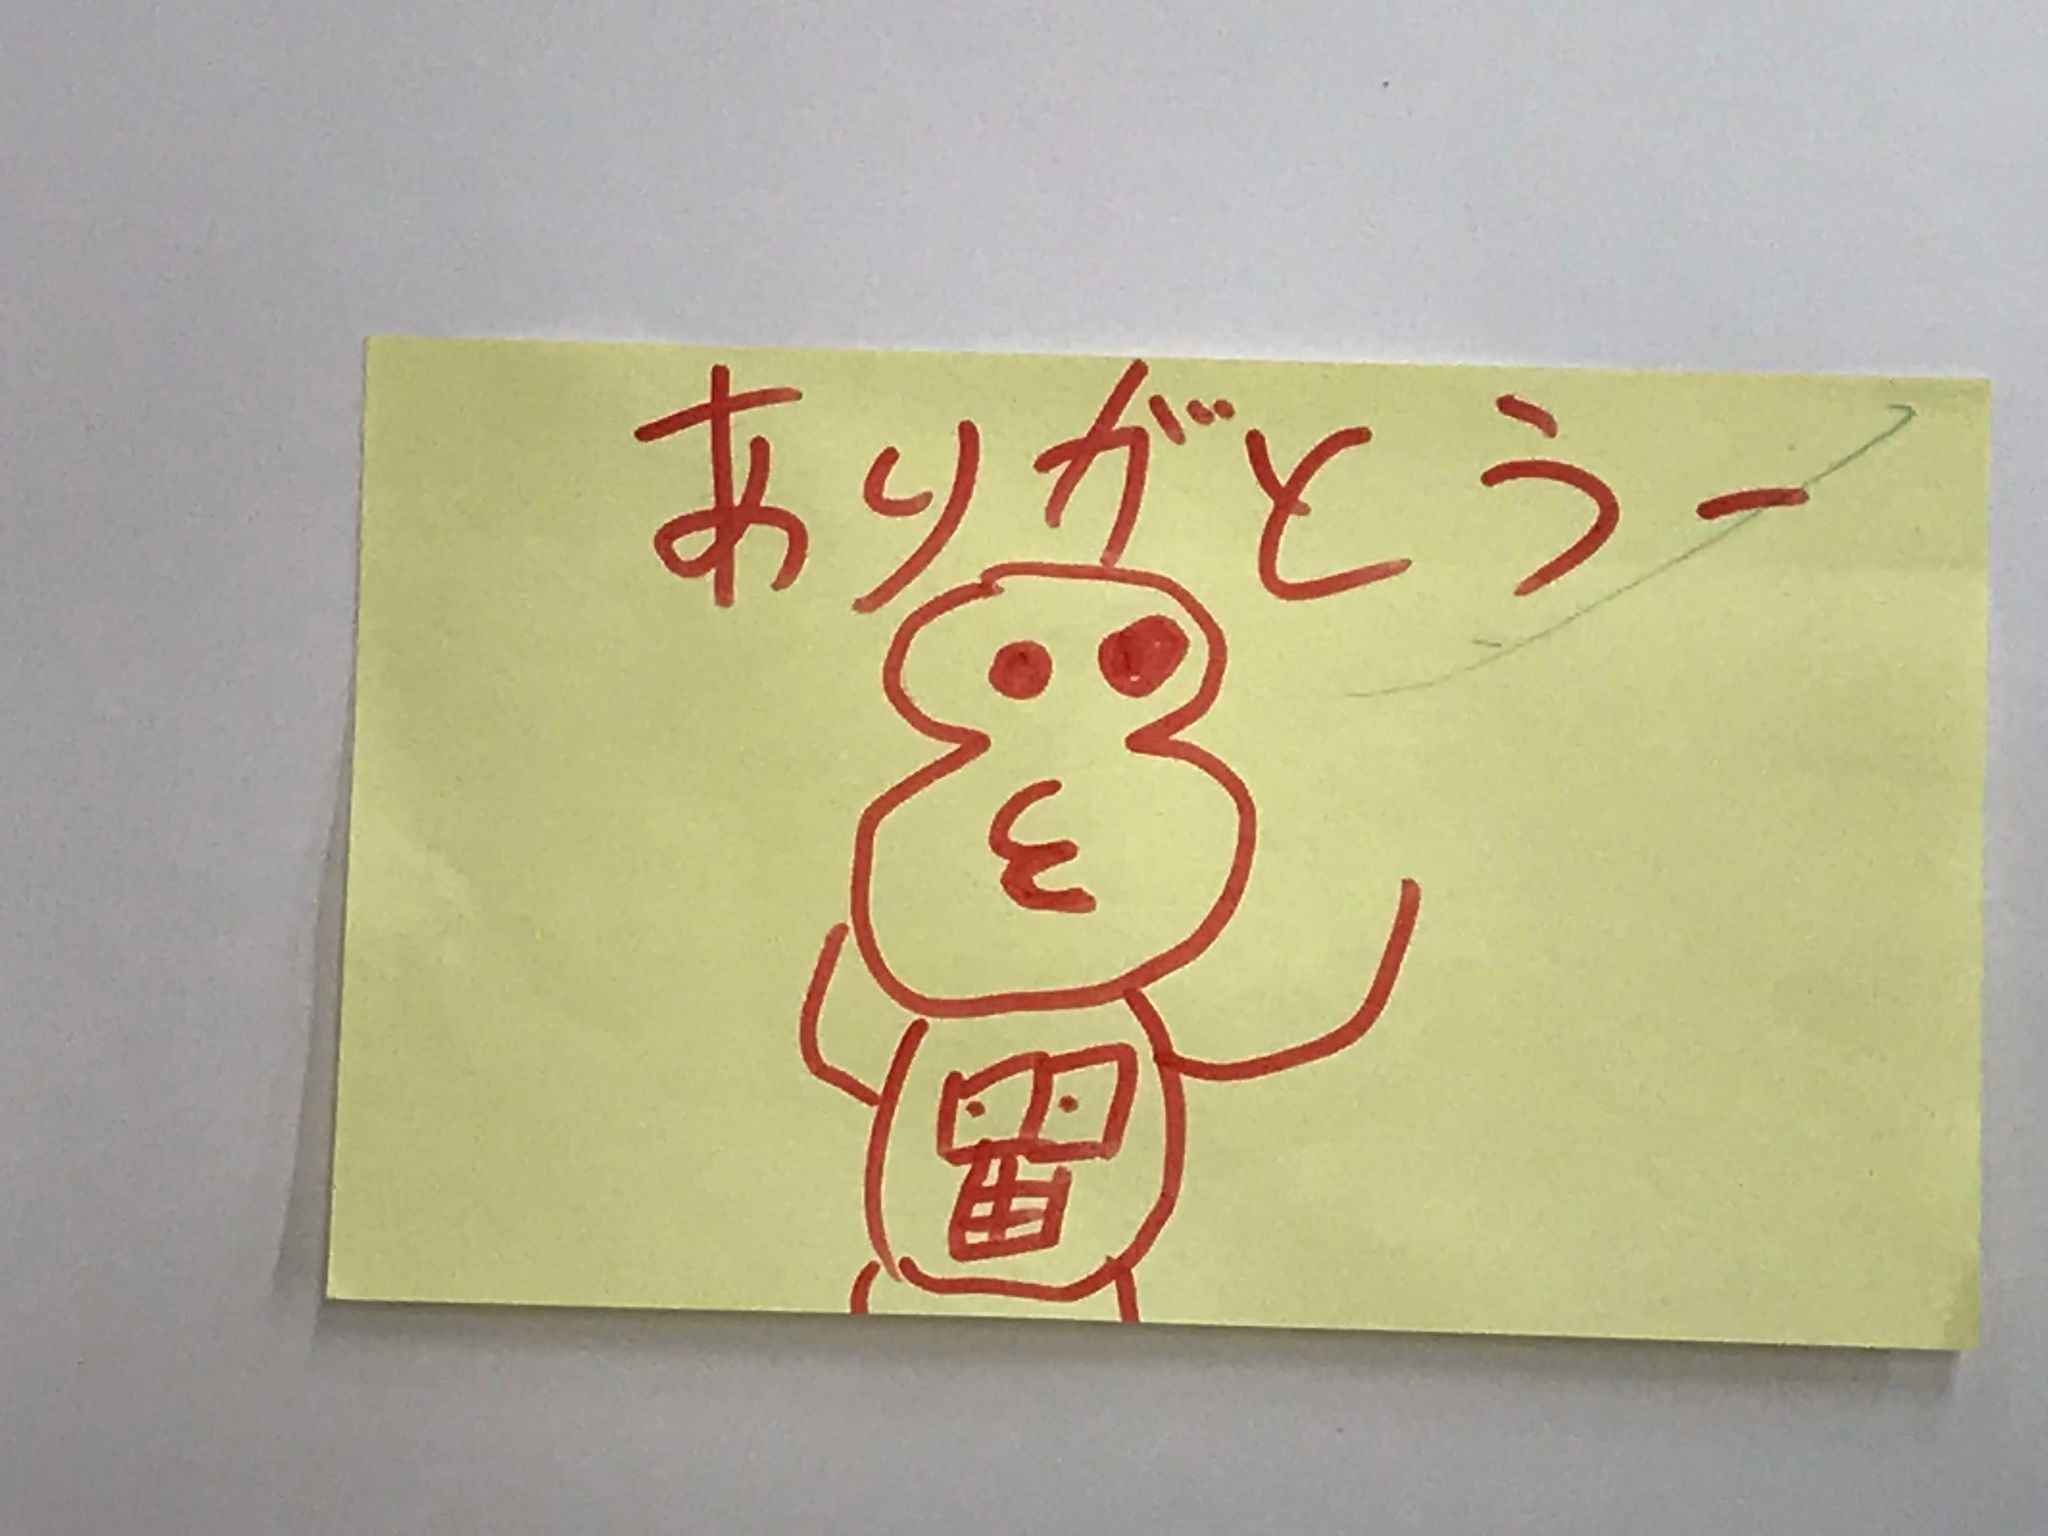 ありがとうー